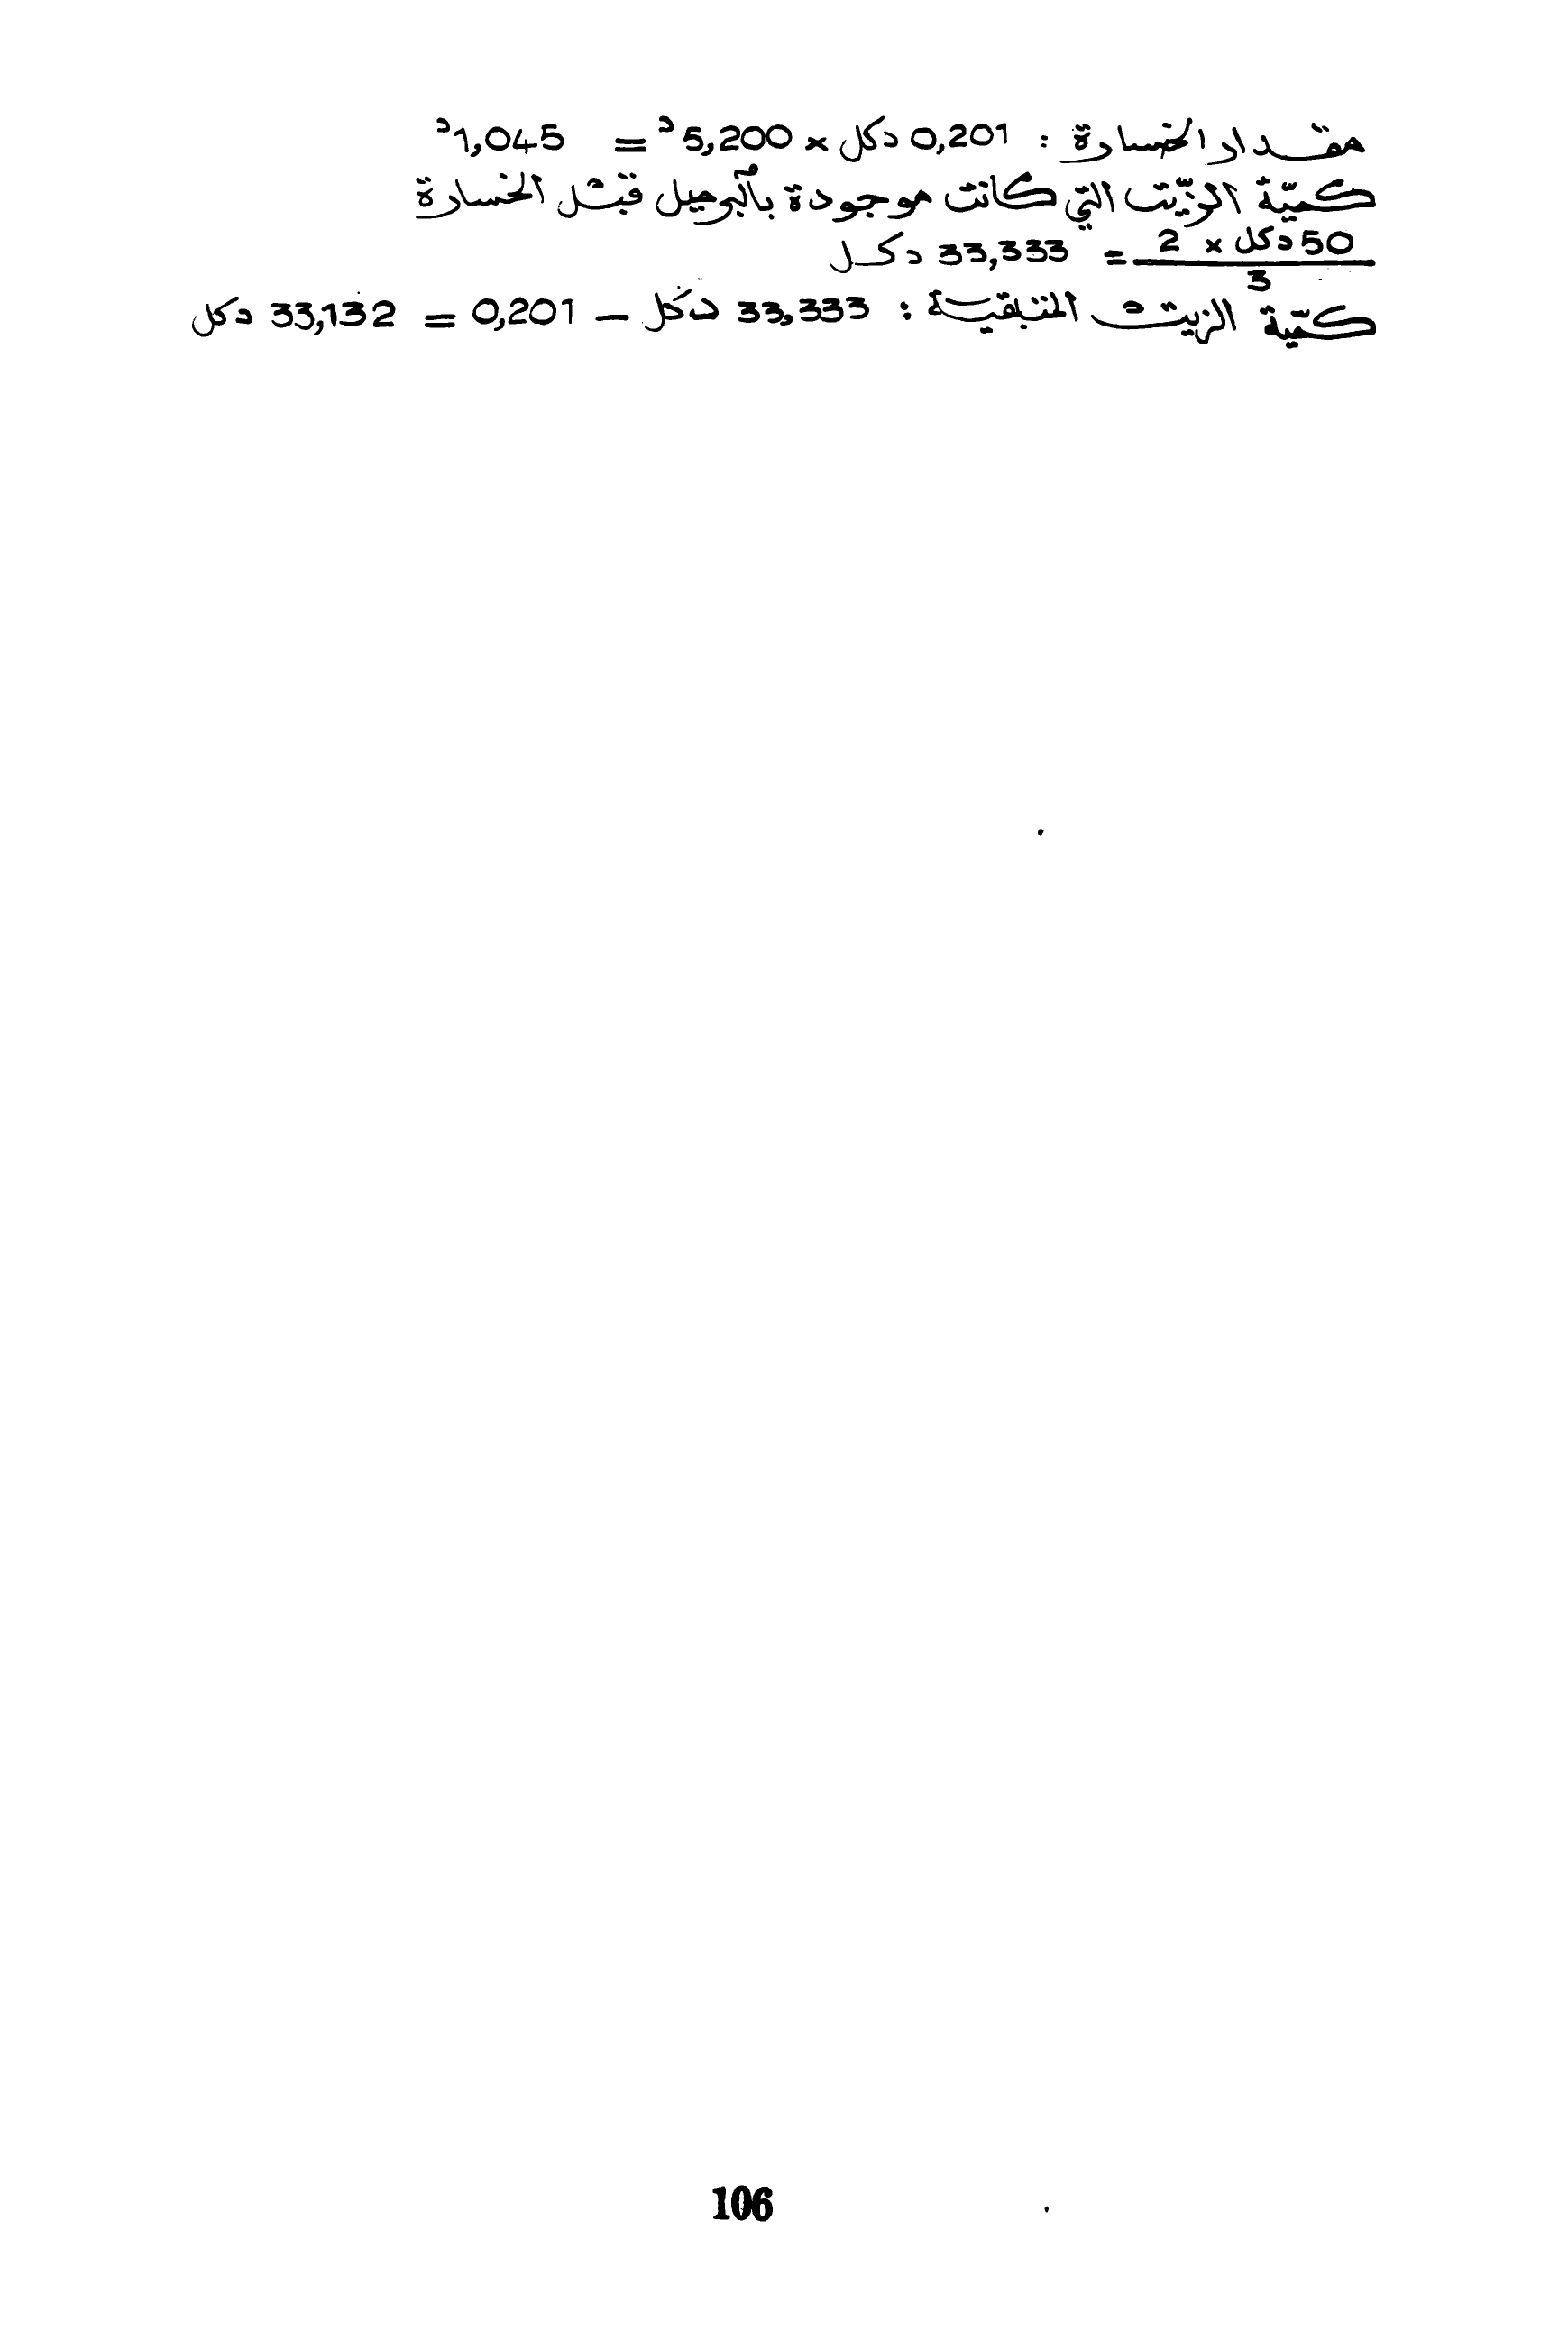 مقدار الخسارة : 0,201 دكل × 5,200 د = 1,045 د
كميّة الزّيت التي كانت موجودة بالبرميل قبل الخسارة
50 دكل × 2 / 3 = 33,333 دكل
كميّة الزيت المتبقية : 33,333 دكل – 0,201 = 33,132 دكل
106